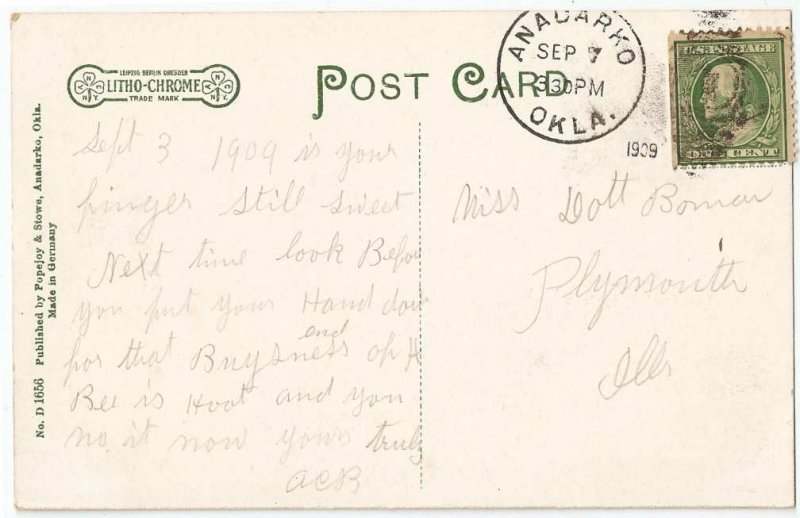 LEIPZIG BERLIN DRESDEN
LITHO-CHROME
TRADE MARK
N Y
N Y
POST CARD
ANADARKO
SEP 7
330PM
OKLA.
1909
U.S. POSTAGE
ONE CENT
Sept 3 1909 is your
finger still sweet
Next time look Befor
you put your Hand dow
for that Buysness end of
Bee is Hoot and you
no it now yours truly
ACB
Miss Dott Bomar
Plymouth
Ills
No. D 1656 Published by Popejoy & Stowe, Anadarko, Okla.
Made in Germany